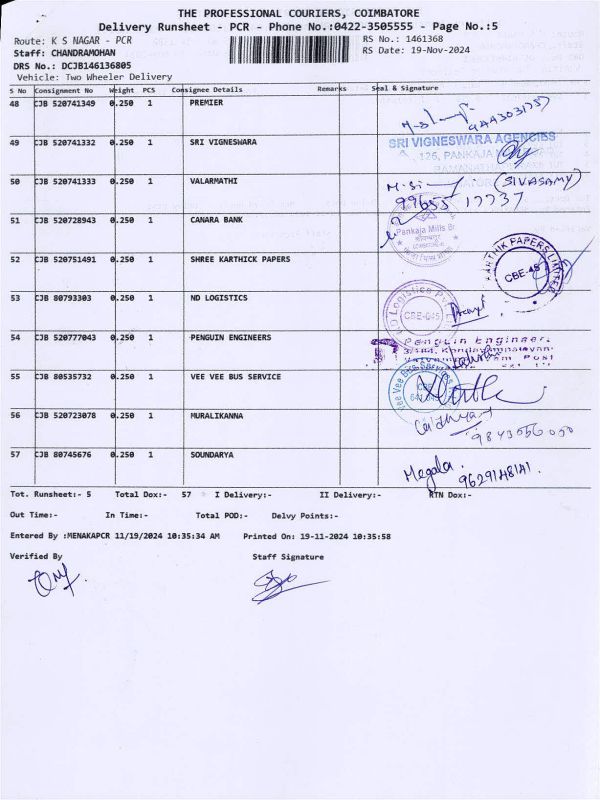 THE PROFESSIONAL COURIERS, COIMBATORE
Delivery Runsheet - PCR - Phone No.:0422-3505555 - Page No.:5
Route: K S NAGAR - PCR
RS No.: 1461368
Staff: CHANDRAMOHAN
RS Date: 19-Nov-2024
DRS No.: DCJB146136805
Vehicle: Two Wheeler Delivery
S No Consignment No Weight PCS Consignee Details Remarks Seal & Signature
48 CJB 520741349 0.250 1 PREMIER
9443031757
49 CJB 520741332 0.250 1 SRI VIGNESWARA
SRI VIGNESWARA AGENCIES
126, PANKAJA
50 CJB 520741333 0.250 1 VALARMATHI
(SIVASAMY)
99655 17737
51 CJB 520728943 0.250 1 CANARA BANK
Pankaja Mills Br
52 CJB 520751491 0.250 1 SHREE KARTHICK PAPERS
KARTHIK PAPERS LIMITED
CBE-45
53 CJB 80793303 0.250 1 ND LOGISTICS
ND Logistics Pvt
CBE-045
54 CJB 520777043 0.250 1 PENGUIN ENGINEERS
Penguin Engineers
55 CJB 80535732 0.250 1 VEE VEE BUS SERVICE
Vee Vee Bus Service
56 CJB 520723078 0.250 1 MURALIKANNA
57 CJB 80745676 0.250 1 SOUNDARYA
Megala.
9629148141.
Tot. Runsheet:- 5 Total Dox:- 57 I Delivery:- II Delivery:- RTN Dox:-
Out Time:- In Time:- Total POD:- Delvy Points:-
Entered By :MENAKAPCR 11/19/2024 10:35:34 AM Printed On: 19-11-2024 10:35:58
Verified By Staff Signature